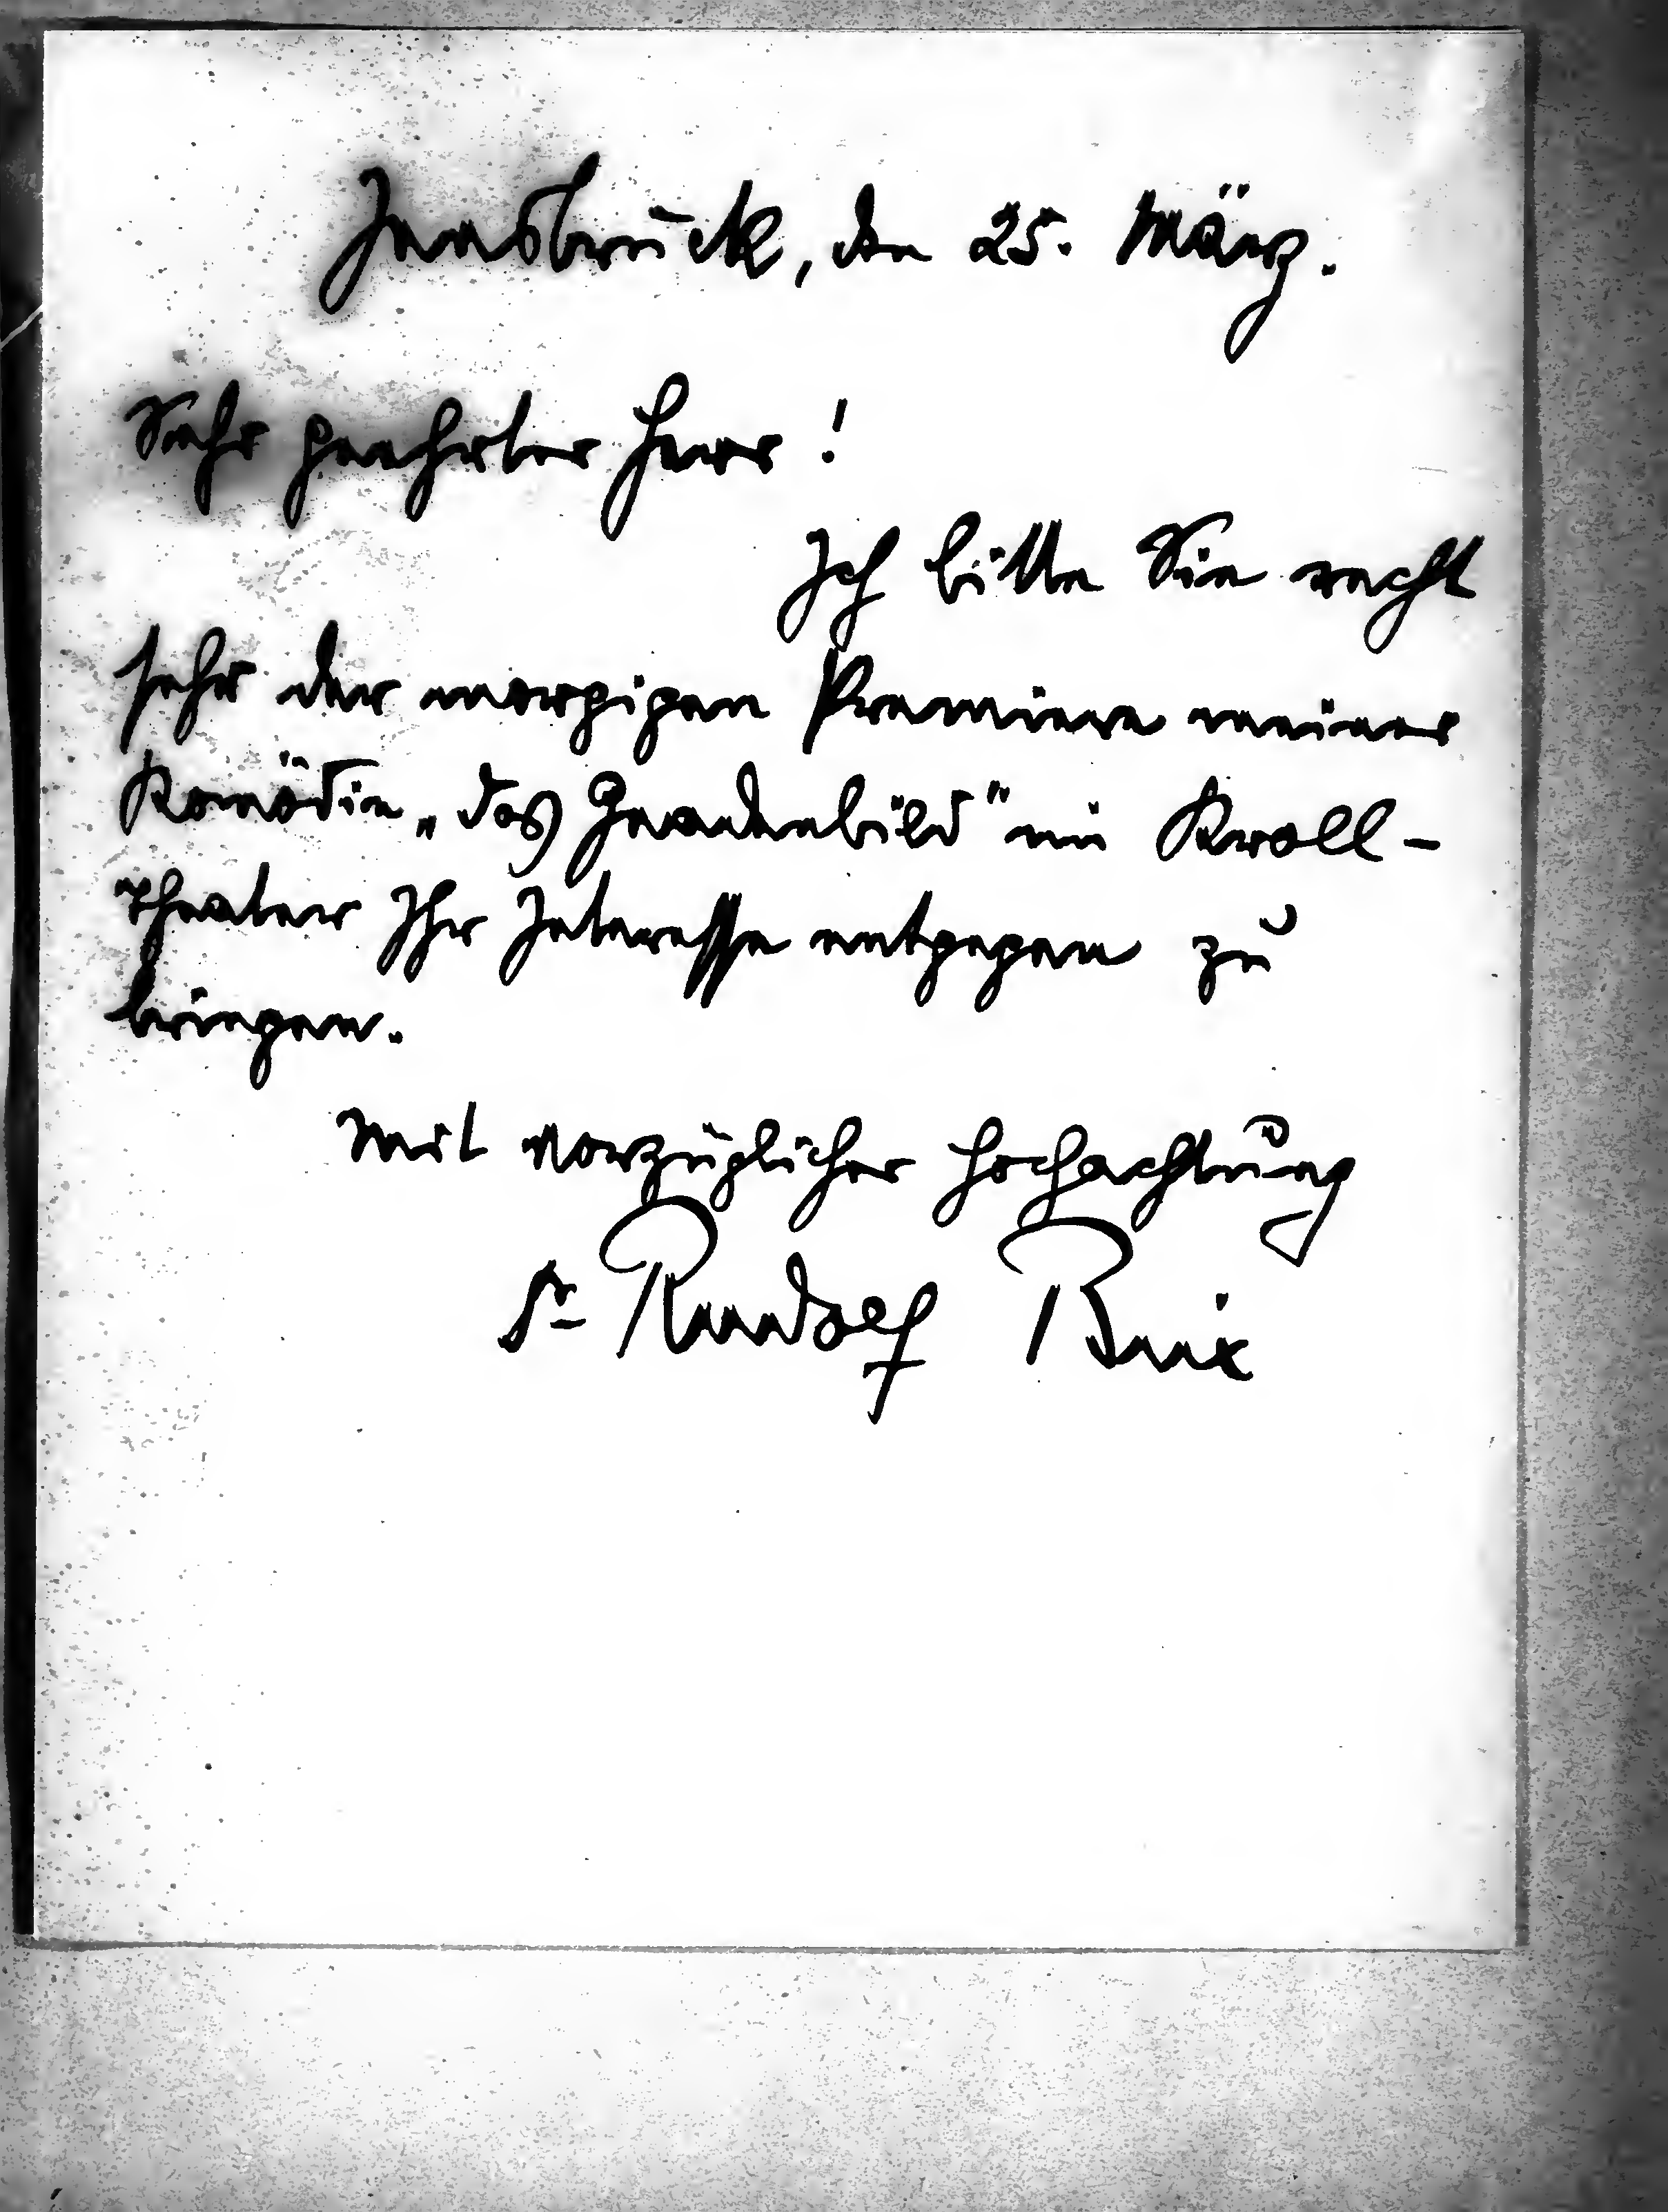 Innsbruck, den 25. März.
Sehr geehrter Herr!
Ich bitte Sie recht
sehr der morgigen Premiere meiner
Komödie „das Gnadenbild" im Kroll-
theater Ihr Interesse entgegen zu
bringen.
Mit vorzüglicher Hochachtung
Dr Rudolf Brix